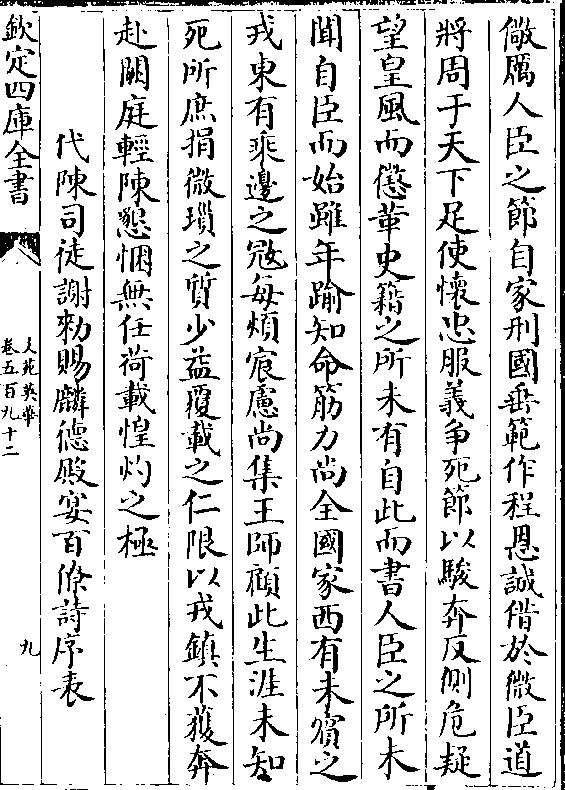 儆厲人臣之節自家刑國垂範作程恩誠偕於微臣道
將周于天下足使懷忠服義争死節以駿奔反側危疑
望皇風而懲革史籍之所未有自此而書人臣之所未
聞自臣而始雖年踰知命筋力尚全國家西有未賓之
戎東有乘邊之冦每煩宸慮尚集王師顧此生涯未知
死所庶捐微瑣之質少益覆載之仁限以戎鎮不獲奔
赴闕庭輕陳懇悃無任荷載惶灼之極
代陳司徒謝勑賜麟德殿宴百僚詩序表
欽定四庫全書
文苑英華
卷五百九十二
九